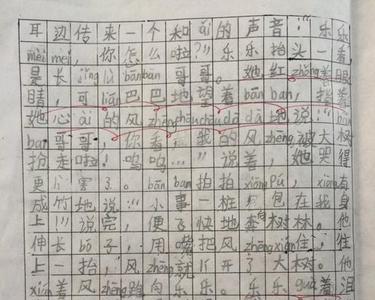 耳边传来一个和ǎi的声音:“乐乐
mèi mei,你怎么啦?”乐乐抬头一看,
是长jǐng lù bānban哥哥。她红zhǒng着眼
睛,可lián巴巴地望着bānban,指着
她心ài的风zhēng chōuchou dādā地说:“bān
ban哥哥,你看,我的风zhēng被大树
抢走啦!呜呜…”说着,她哭得
更厉害了。bānban拍拍xiōng pú,
成竹地说:“小事一桩,包在我身
上!”说完,便飞快地奔向树林。他
伸长bó子,用嘴把风zhēng xián住,往
上一抬,风zhēng就离开了大树。他
着风zhēng跑向乐乐。乐乐guà着泪